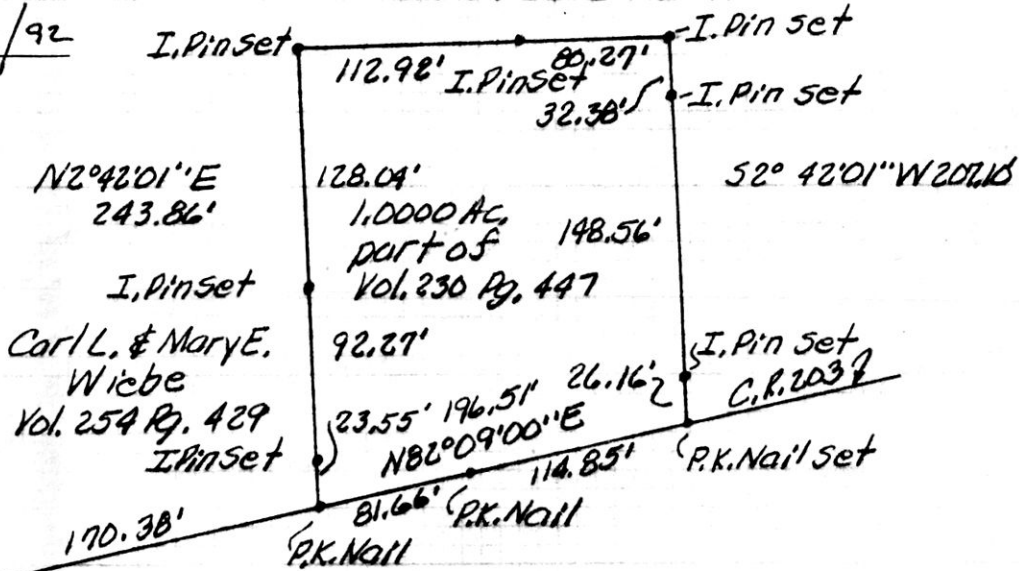 /92
I.Pinset
I.Pin set
112.92'
80.27'
I.Pinset
32.38'
I.Pin set
N2°42'01"E
243.86'
128.04'
1.0000 Ac.
part of
Vol. 230 Pg. 447
148.56'
S2° 42'01"W
I.Pinset
Carl L. & Mary E.
Wiebe
Vol. 254 Pg. 429
92.27'
I.Pin set
26.16'
C.R. 203
23.55'
196.51'
N82°09'00"E
IPinset
114.85'
P.K. Nail set
81.66'
P.K. Nail
170.38'
P.K. Nail